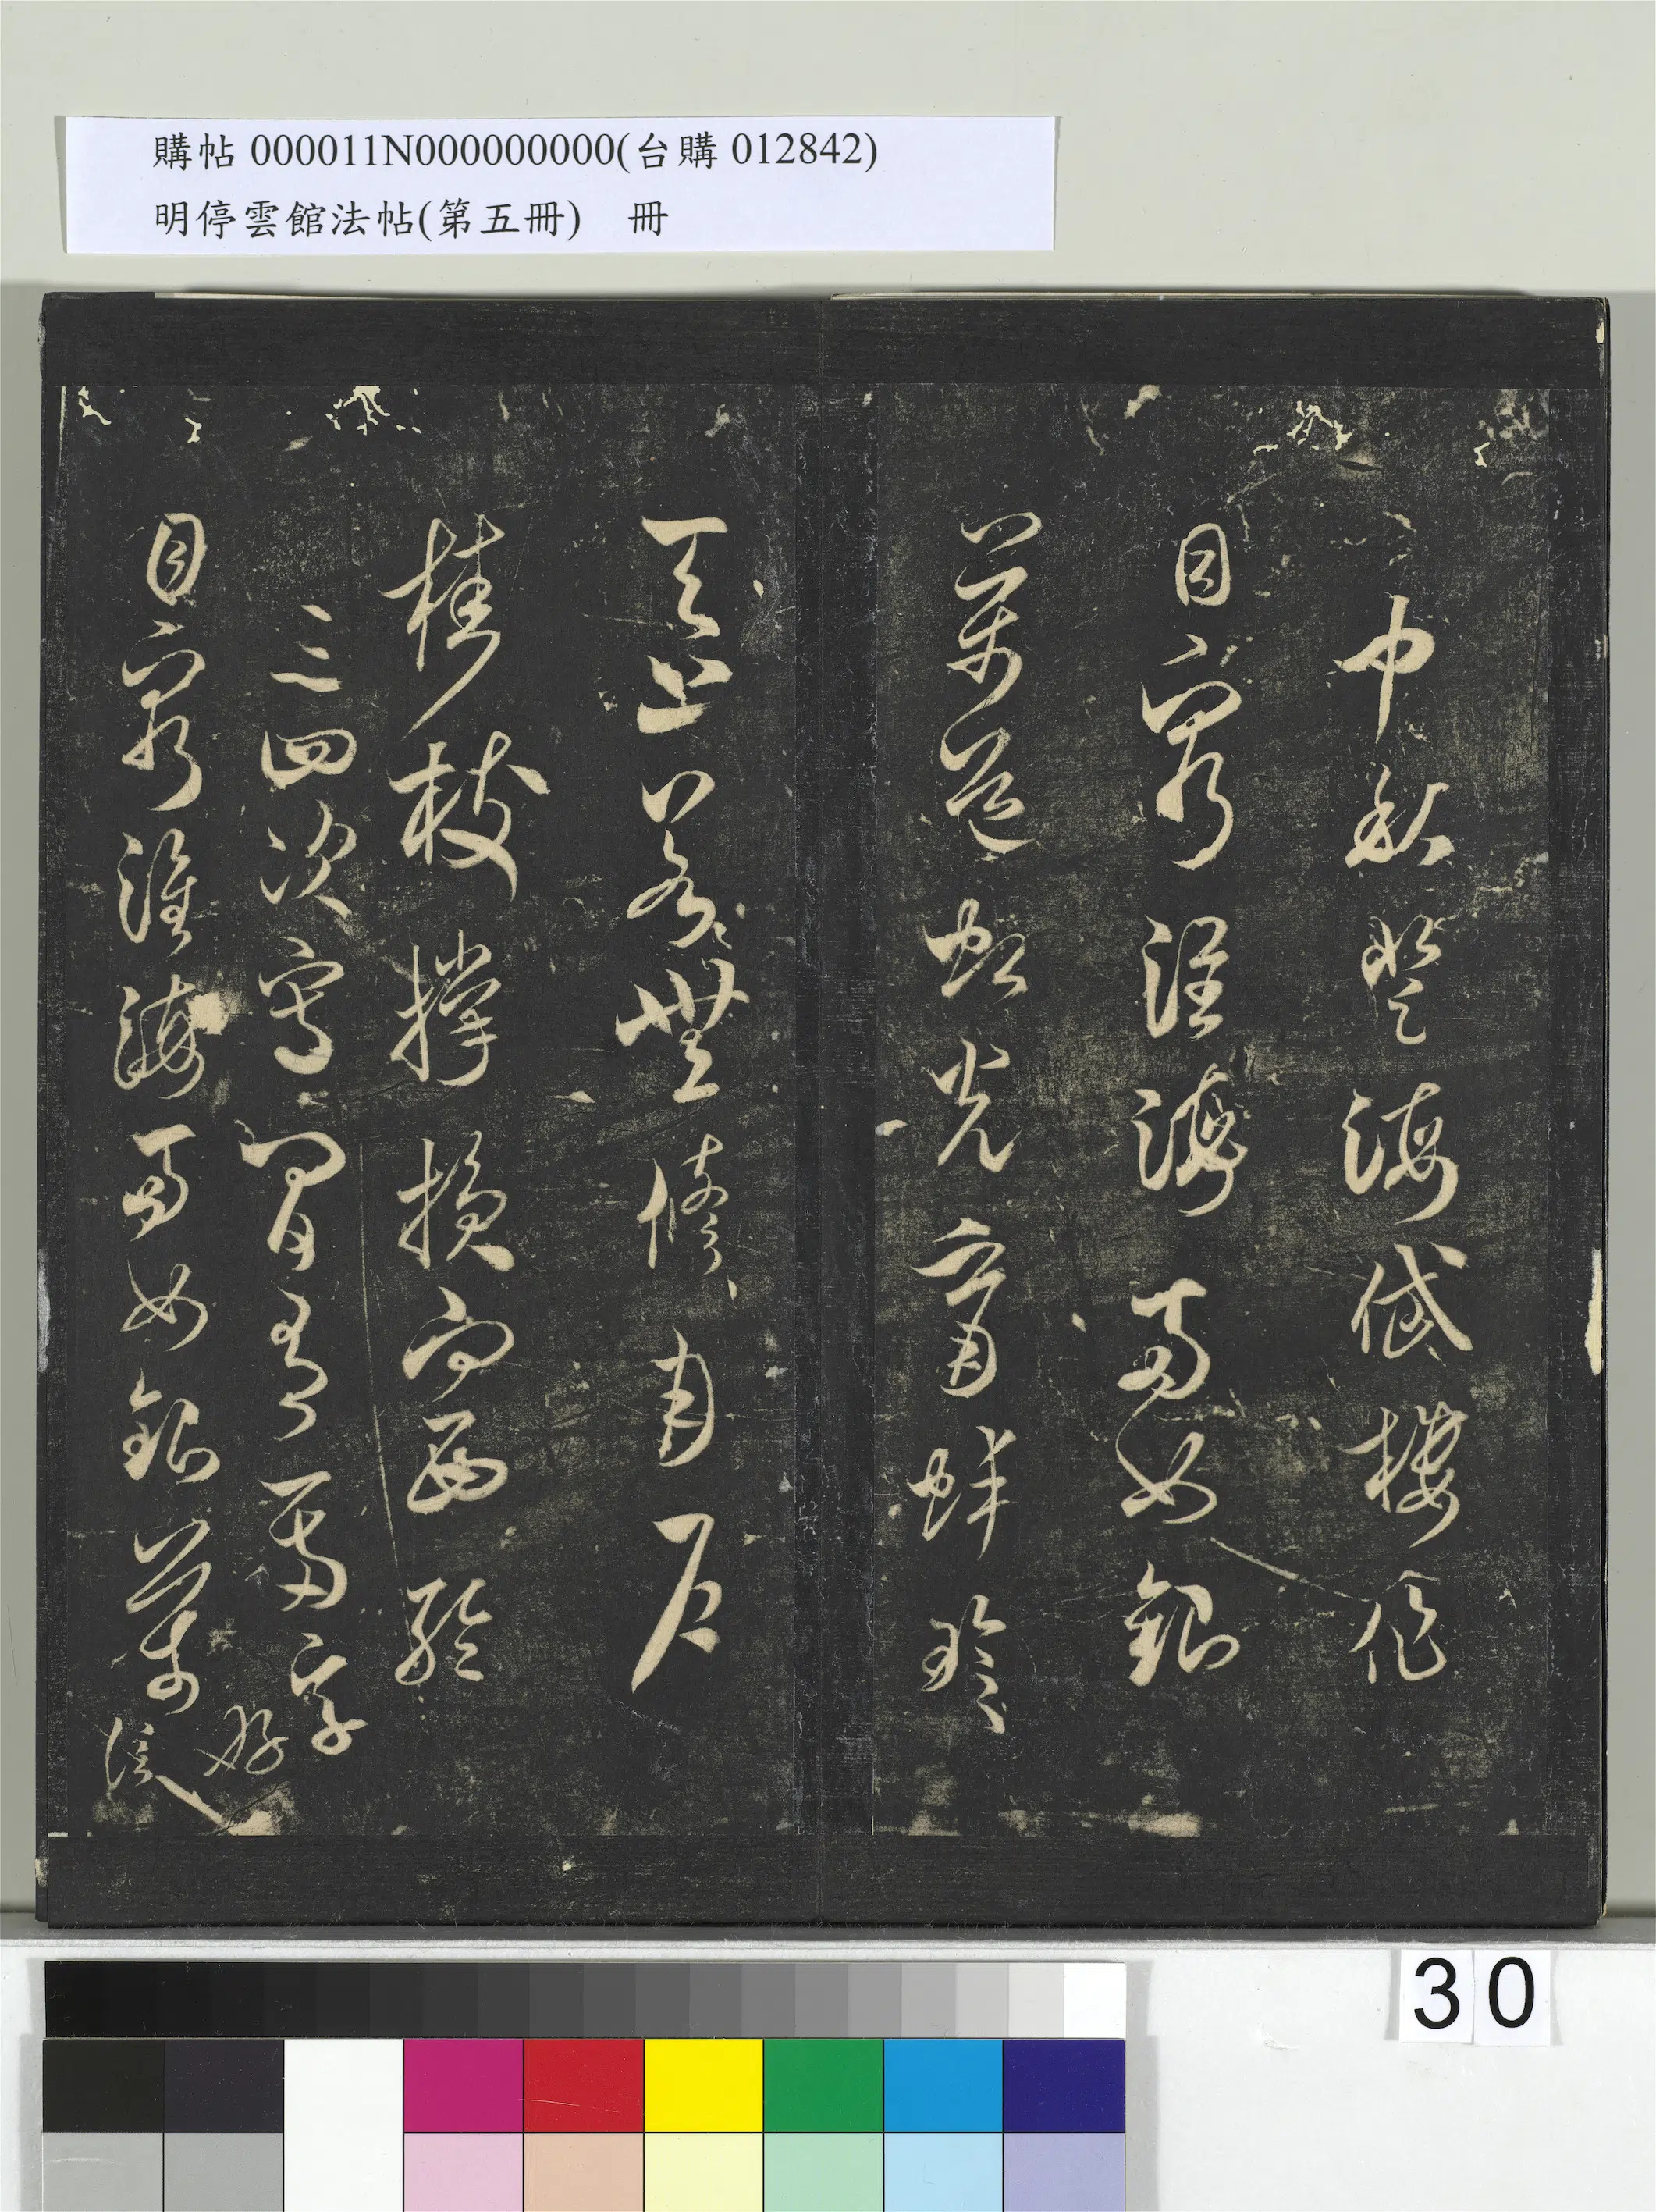 購帖 000011N000000000(台購 012842)
明停雲館法帖(第五冊) 冊
中秋登海岱樓作
目窮淮海兩如銀
萬道虹光育蚌珍
天上若無修月戶
桂枝撐損向西輪
三四次寫間有一兩字好
目窮淮海兩如銀萬
30